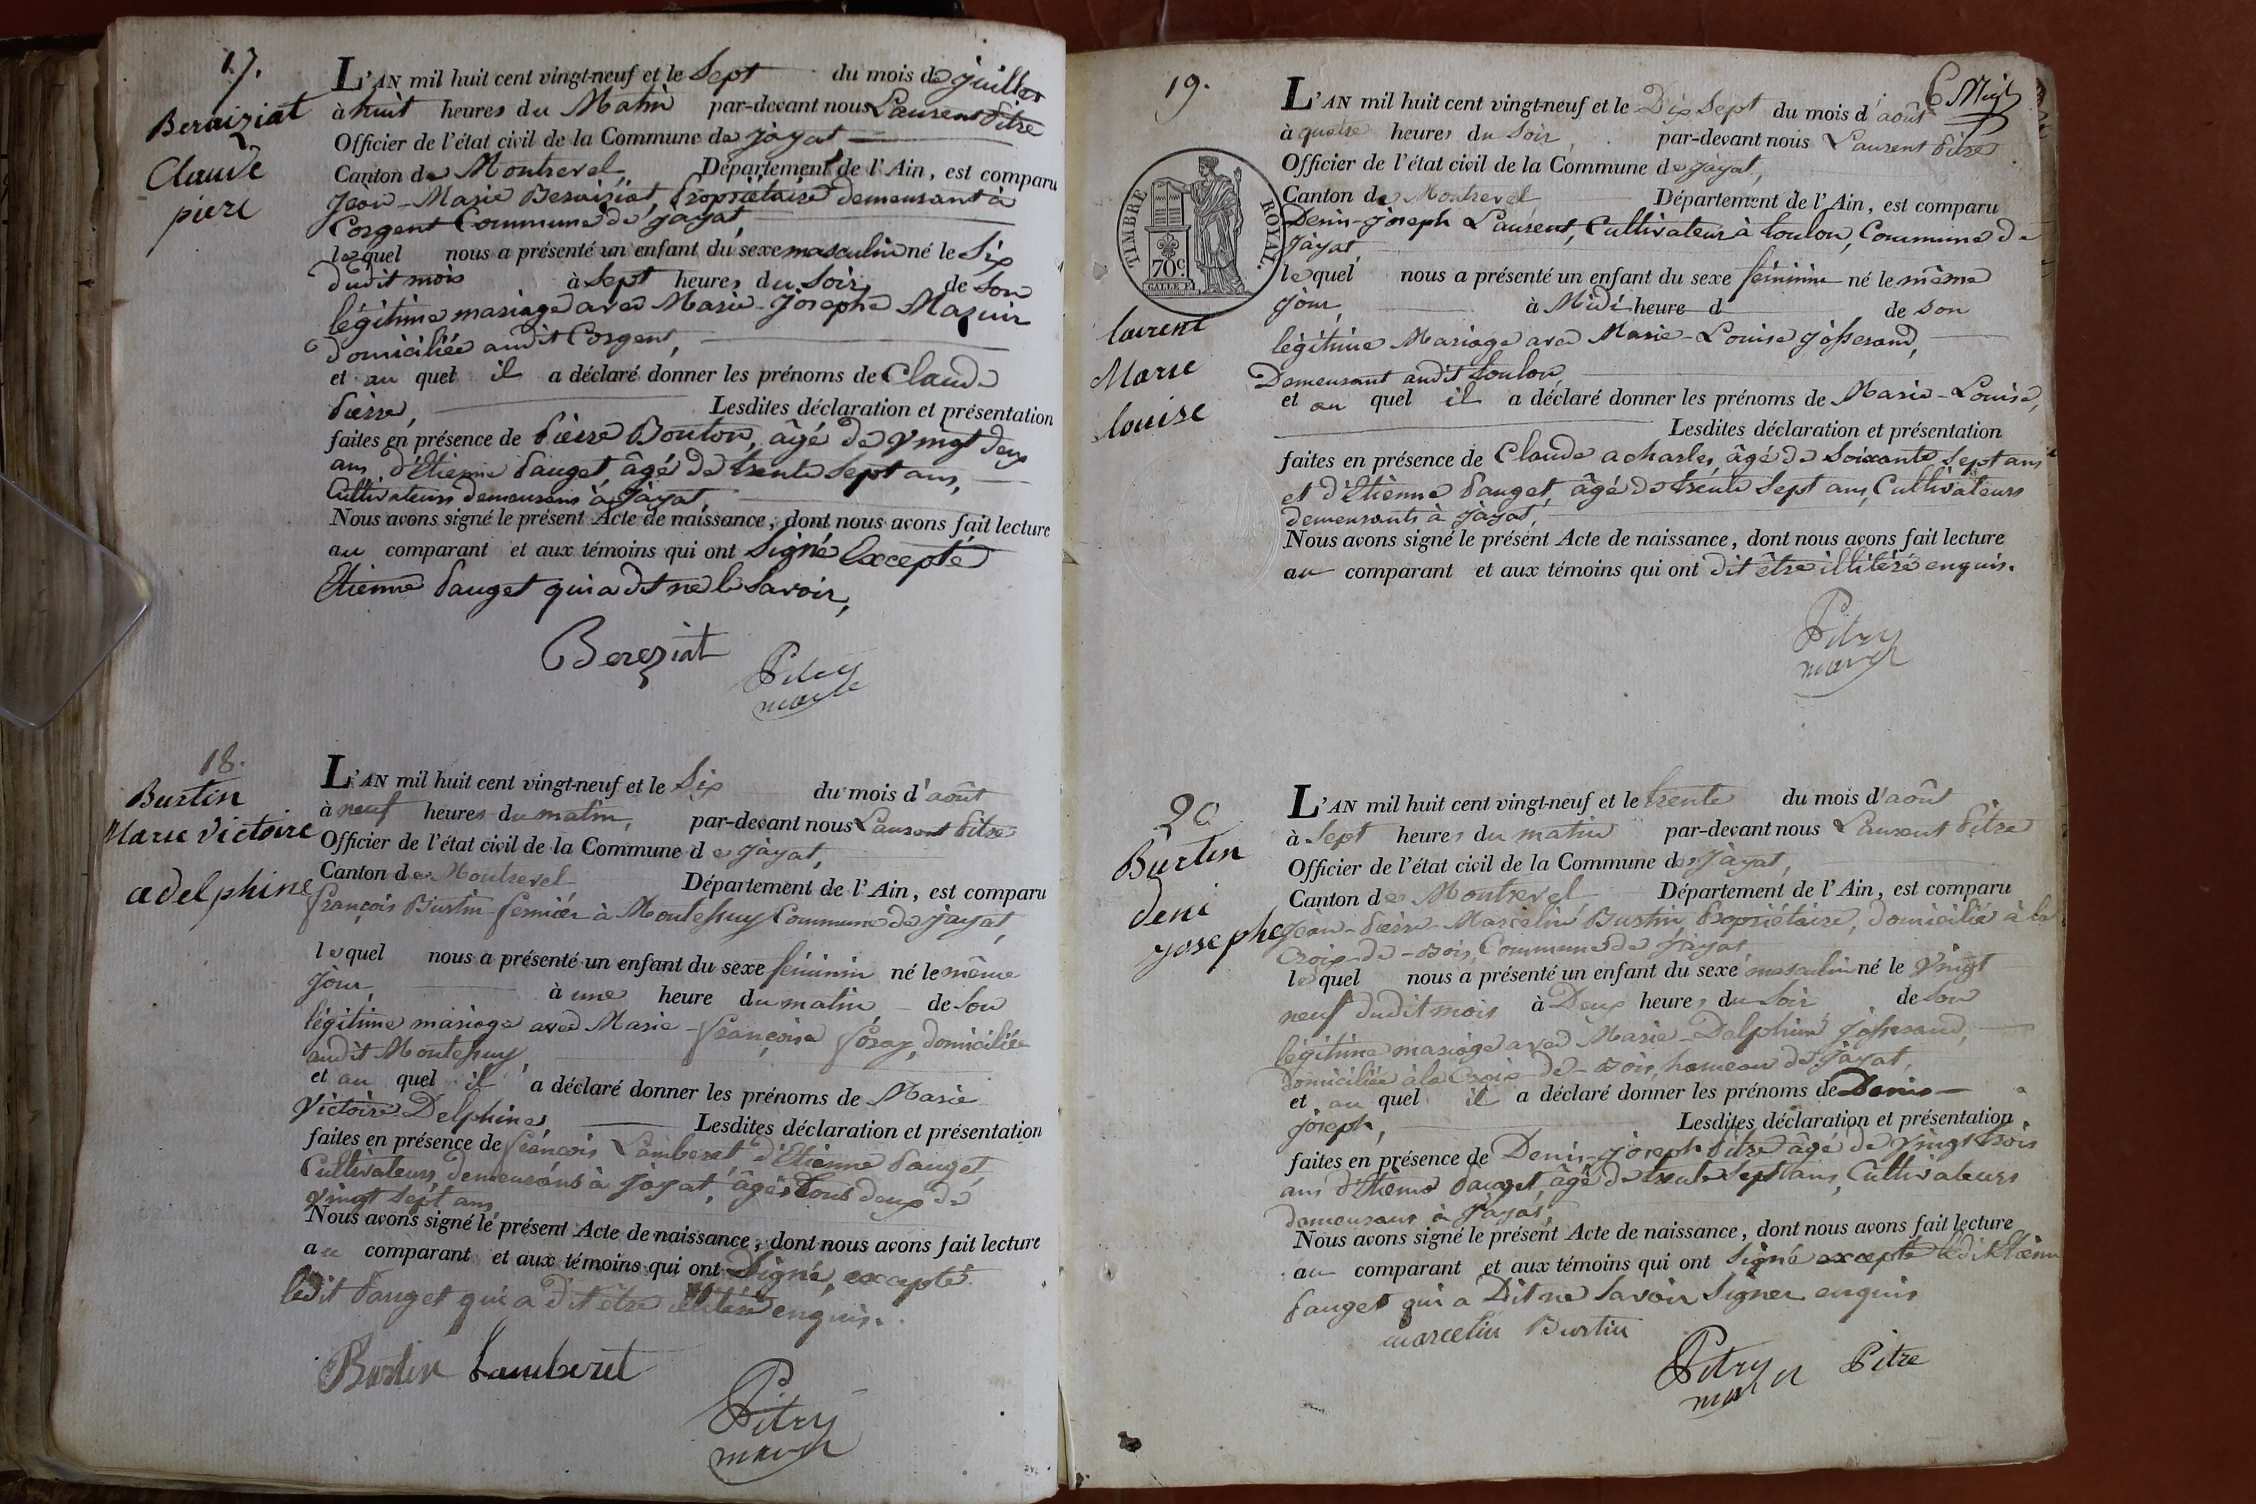 17.
Beraiziat
Claude
piere
L'AN mil huit cent vingt-neuf et le Sept du mois de juillet
à huit heures du Matin par-devant nous Laurent Pitre
Officier de l'état civil de la Commune de jayat
Canton de Montrevel Département de l'Ain, est comparu
Jean-Marie Beraiziat, Propriétaire demeurant à
Corgent Commune de jayat,
lequel nous a présenté un enfant du sexe masculin né le Six
dudit mois à Sept heures du Soir, de Son
légitime mariage avec Marie-Josephe Mazuir
domiciliée audit Corgent,
et au quel il a déclaré donner les prénoms de Claude
Pierre, Lesdites déclaration et présentation
faites en présence de Pierre Bouton, âgé de Vingt deux
ans, d'Etienne Pauget, âgé de trente Sept ans,
Cultivateurs demeurans à Jayat,
Nous avons signé le présent Acte de naissance, dont nous avons fait lecture
au comparant et aux témoins qui ont Signé Excepté
Etienne Pauget qui a dit ne le Savoir,
Bereziat
Pitre
maire
18.
Burtin
Marie Victoire
adelphine
L'AN mil huit cent vingt-neuf et le Six du mois d'août
à neuf heures du matin, par-devant nous Laurent Pitre
Officier de l'état civil de la Commune de Jayat,
Canton de Montrevel Département de l'Ain, est comparu
François Burtin fermier à Montepuy Commune de jayat,
lequel nous a présenté un enfant du sexe féminin né le même
jour, à une heure du matin de Son
légitime mariage avec Marie-Françoise Foray, domiciliée
audit Montepuy,
et au quel il a déclaré donner les prénoms de Marie
Victoire Delphine, Lesdites déclaration et présentation
faites en présence de François Lamberet d'Etienne Pauget,
Cultivateurs, demeurans à Jayat, âgés tous deux de
Vingt Sept ans,
Nous avons signé le présent Acte de naissance, dont nous avons fait lecture
au comparant et aux témoins qui ont Signé, excepté
ledit Pauget qui a dit être illitéré enquis.
Burtin Lamberet
Pitre
maire
19.
TIMBRE ROYAL.
70c
L'AN mil huit cent vingt-neuf et le Dix Sept du mois d'août
à quatre heures du Soir, par-devant nous Laurent Pitre
Officier de l'état civil de la Commune de Jayat,
Canton de Montrevel Département de l'Ain, est comparu
Denis-Joseph Laurent, Cultivateur à Loulon, Commune de
Jayat
lequel nous a présenté un enfant du sexe féminin né le même
jour, à Midi heure d de son
légitime Mariage avec Marie-Louise Josserand,
Demeurant audit Loulon,
laurent
Marie
louise
et au quel il a déclaré donner les prénoms de Marie-Louise,
Lesdites déclaration et présentation
faites en présence de Claude acharles, âgé de Soixante Sept ans
et d'Etienne Pauget, âgé de trente Sept ans, Cultivateurs
demeurants à Jayat,
Nous avons signé le présent Acte de naissance, dont nous avons fait lecture
au comparant et aux témoins qui ont dit être illitéré enquis.
Pitre
maire
20
Burtin
deni
josephe
L'AN mil huit cent vingt-neuf et le trente du mois d'août
à Sept heures du matin par-devant nous Laurent Pitre
Officier de l'état civil de la Commune de Jayat,
Canton de Montrevel Département de l'Ain, est comparu
Jean-Pierre-Marcelin Burtin, Propriétaire, domicilié à la
Croix-de-Bois, Commune de Jayat
lequel nous a présenté un enfant du sexe masculin né le Vingt
neuf dudit mois à Deux heures du Soir de Son
légitime mariage avec Marie-Delphine Josserand,
domiciliée à la Croix-de-Bois, hameau de Jayat,
et au quel il a déclaré donner les prénoms de Denis
Joseph, Lesdites déclaration et présentation
faites en présence de Denis-Joseph Pitre âgé de Vingt trois
ans d'Etienne Pauget, âgé de trente Sept ans, Cultivateurs
demeurans à Jayat,
Nous avons signé le présent Acte de naissance, dont nous avons fait lecture
au comparant et aux témoins qui ont Signé excepté ledit Etienne
Pauget qui a Dit ne Savoir Signer enquis
marcelin Burtin
Pitre Pitre
maire